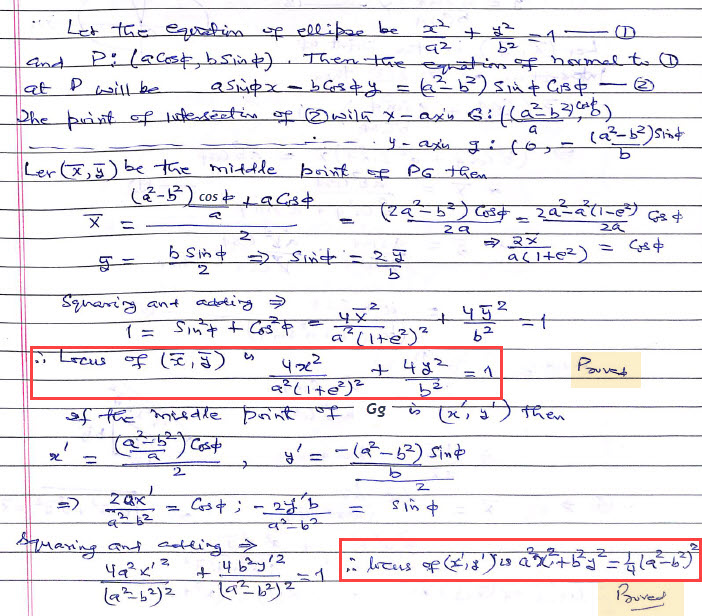 Let the equation of ellipse be x²/a² + y²/b² = 1 —— ①
and P: (a cosϕ, b sinϕ). Then the equation of normal to ①
at P will be a sinϕ x – b cosϕ y = (a²–b²) sinϕ cosϕ —②
The point of intersection of ② with x-axis G: ((a²–b²) cosϕ/a, 0)
y-axis g: (0, – (a²–b²) sinϕ/b
Let (x̄, ȳ) be the middle point of PG then
x̄ = ((a²–b²) cosϕ/a + a cosϕ)/2 = (2a²–b²) cosϕ/2a = 2a²–a²(1–e²)/2a cosϕ
⇒ 2x̄/a(1+e²) = cosϕ
ȳ = b sinϕ/2 ⇒ sinϕ = 2ȳ/b
Squaring and adding ⇒
1 = sin²ϕ + cos²ϕ = 4x̄²/a²(1+e²)² + 4ȳ²/b² = 1
∴ Locus of (x̄, ȳ) is 4x²/a²(1+e²)² + 4y²/b² = 1 Proved
If the middle point of Gg is (x', y') then
x' = ((a²–b²)/a) cosϕ/2 , y' = –(a²–b²) sinϕ/b/2
⇒ 2ax'/a²–b² = cosϕ ; –2y'b/a²–b² = sinϕ
Squaring and adding ⇒
4a²x'²/(a²–b²)² + 4b²y'²/(a²–b²)² = 1 ∴ locus of (x', y') is a²x²+b²y² = ¼(a²–b²)²
Proved